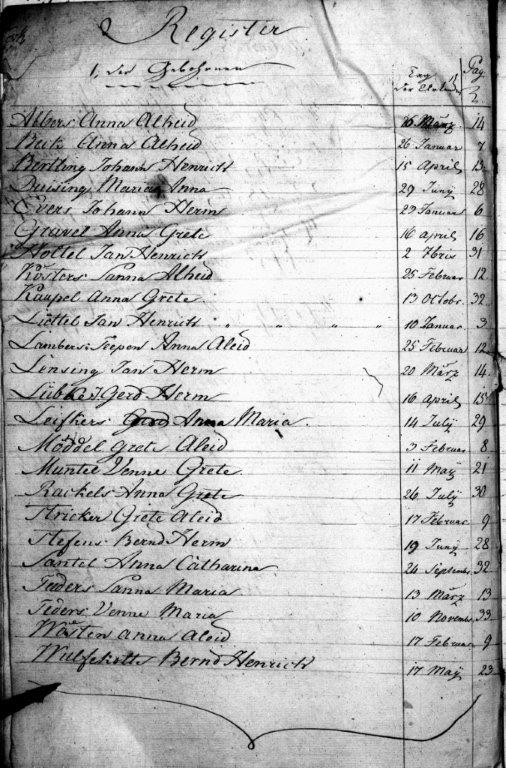 Register
1, der Gebohrnen
Tag der
Pag.
Albers Anna Alheid 16 März 14
Beck Anna Alheid 26 Januar 7
Bertling Johann Henrich 15 April 15
Duising Maria Anna 29 Juny 28
Evers Johann Herm 23 Januar 6
Gravel Anna Grete 16 April 16
Holtel Jan Henrich 2 7bris 31
Kösters Sanna Alheid 25 Februar 12
Kaupel Anna Grete 13 Octobr. 32
Liettel Jan Henrich " " " 10 Januar 3
Lambers Anna Aleid 25 Februar 12
Lensing Jan Herm 20 März 14
Gerd Herm 16 April 15
Leifkers Anna Maria 14 July 29
Möddel Grete Aleid 3 Februar 8
Muntel Venne Grete 11 May 21
Rackels Anna Grete 26 July 30
Stricker Grete Aleid 17 Februar 9
Stefens Bernd Herm 19 Juny 28
Santel Anna Catharina 24 September 32
Teders Sanna Maria 13 März 13
Teders Venne Maria 10 November 33
Wösten Anna Aleid 17 Februar 9
Wulfekotte Bernd Henrich 17 May 23